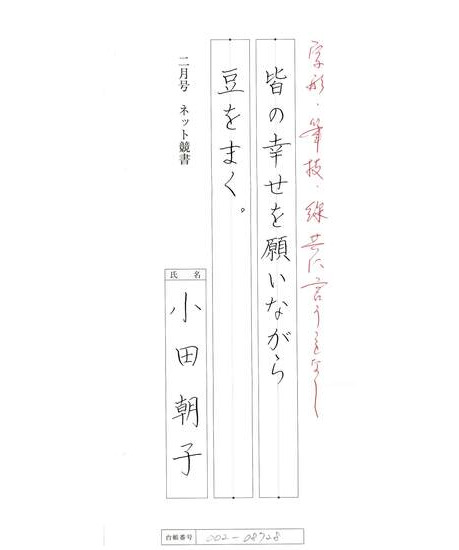 字形・筆技・線共に言うことなし
皆の幸せを願いながら
豆をまく。
二月号 ネット競書
氏名
小田朝子
台帳番号 002-08728